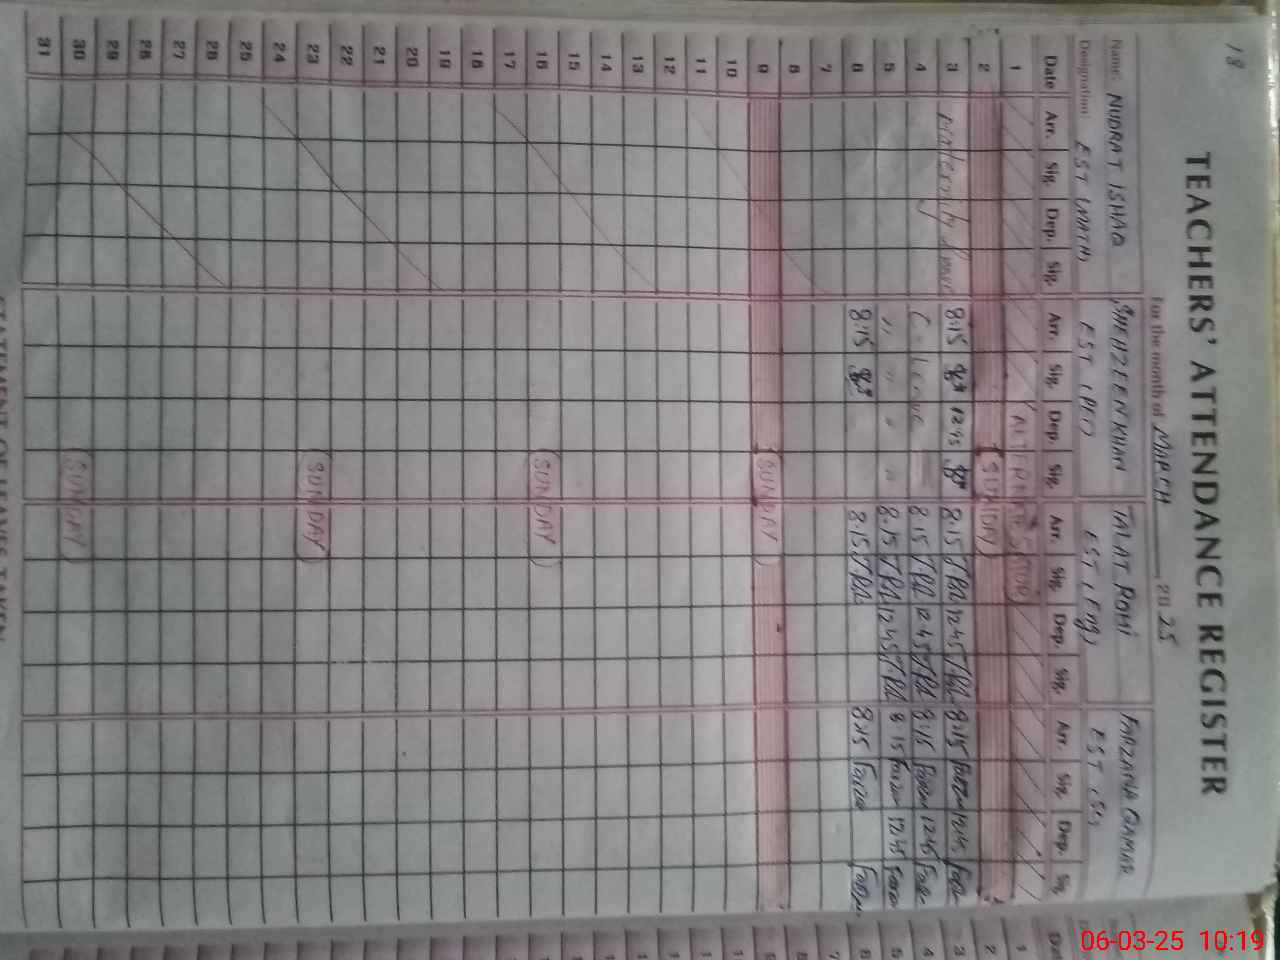 18
TEACHERS' ATTENDANCE REGISTER
For the month of MARCH 2025
Name: NUDRAT ISHAQ SHEHZEEN KHAN TALAT ROMI FARZANA QAMAR
Designation EST (MATH) EST (PET) EST (Eng) EST
Date Arr. Sig. Dep. Sig. Arr. Sig. Dep. Sig. Arr. Sig. Dep. Sig. Arr. Sig. Dep. Sig.
1
2 (SUNDAY)
3 Maternity Leave 8:15 12:45 8:15 12:45 8:15 12:45
4 C-Leave 8:15 12:45 8:15 12:45
5 " " " " 8:15 12:45 8:15 12:45
6 8:15 8:15 8:15
7
8
9 (SUNDAY)
10
11
12
13
14
15
16 (SUNDAY)
17
18
19
20
21
22
23 (SUNDAY)
24
25
26
27
28
29
30 (SUNDAY)
31
STATEMENT OF LEAVES TAKEN
06-03-25 10:19